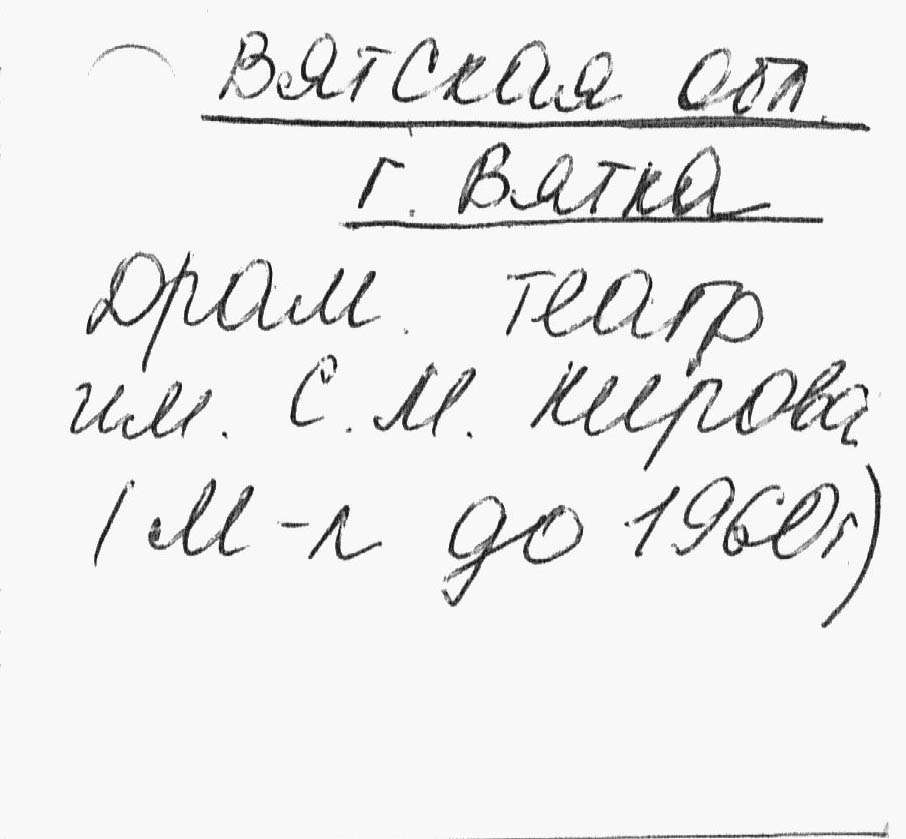 Вятская обл.
г. Вятка
Драм. театр
им. С.М. Кирова
(М-л до 1960г)